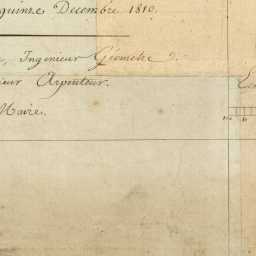 quinze Decembre 1810.
, Ingenieur Géometre
ieur Arpenteur.
Maire.